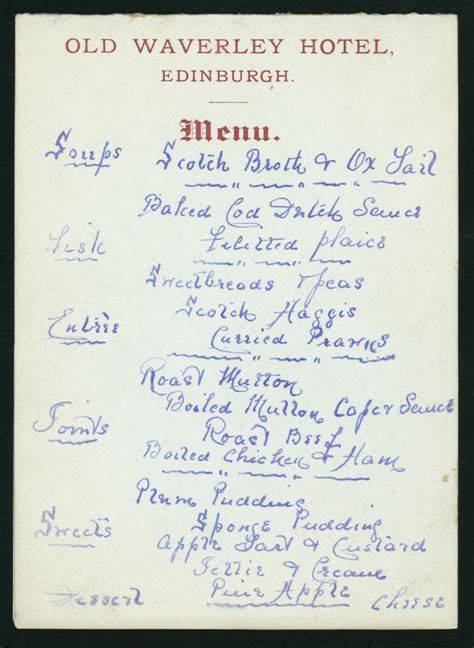 OLD WAVERLEY HOTEL,
EDINBURGH.
Menu.
Soups Scotch Broth & Ox Tail
Baked Cod Dutch Sauce
Fish Filetted plaice
Sweetbreads & peas
Scotch Haggis
Entrèe Curried Prawns
Roast Mutton
Boiled Mutton Caper Sauce
Joints Roast Beef
Boiled Chicken & Ham
Plum Pudding
Sweets Sponge Pudding
Apple Tart & Custard
Jellie & Creame
Dessert Pine Apple Cheese